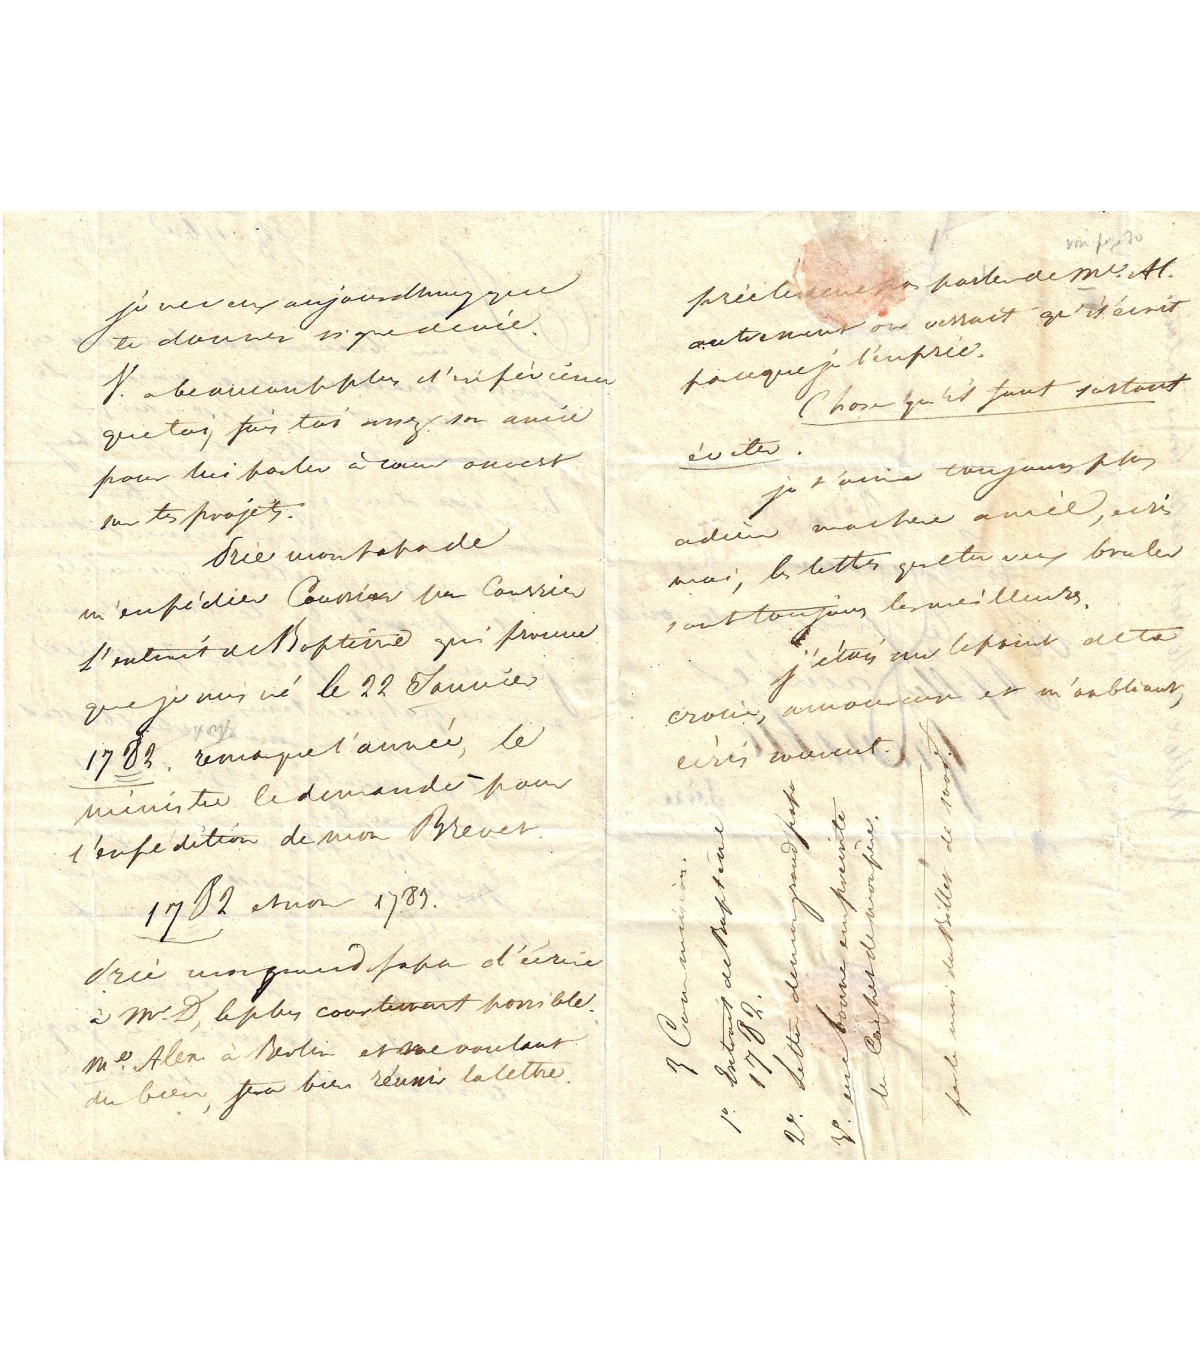 je ne veux aujourdhuy que
te donner signe de vie.
V. a beaucoup plus d'expérience
que toi, fais toi assez son amie
pour lui parler à cœur ouvert
sur tes projets.
Prie mon papa de
m'expédier Courrier par Courrier
l'extrait de Baptême qui prouve
que je suis né le 22 Janvier
1782. remarque l'année, le
ministre le demande pour
l'expédition de mon Brevet.
1782 et non 1783.
Prie mon grand papa d'écrire
à Mr. D, le plus courtement possible.
Mr. Alex à Berlin et me voulant
du bien, fera bien réussir la lettre.
voir page
prie le de ne pas parler de Mr. Al.
autrement on verrait qu'il écrit
parceque je l'en prie.
Chose qu'il faut surtout
éviter.
je t'aime toujours plus
adieu ma chere amie, écris
moi, les lettres que tu veux bruler
sont toujours les meilleures.
j'étais sur le point de te
croire, amoureuse et m'oubliant,
écris souvent.
3 Commissions.
1°. Extrait de Baptême
1782.
2°. Lettre de mon grand papa
3°. une bonne empreinte
du Cachet de mon père.